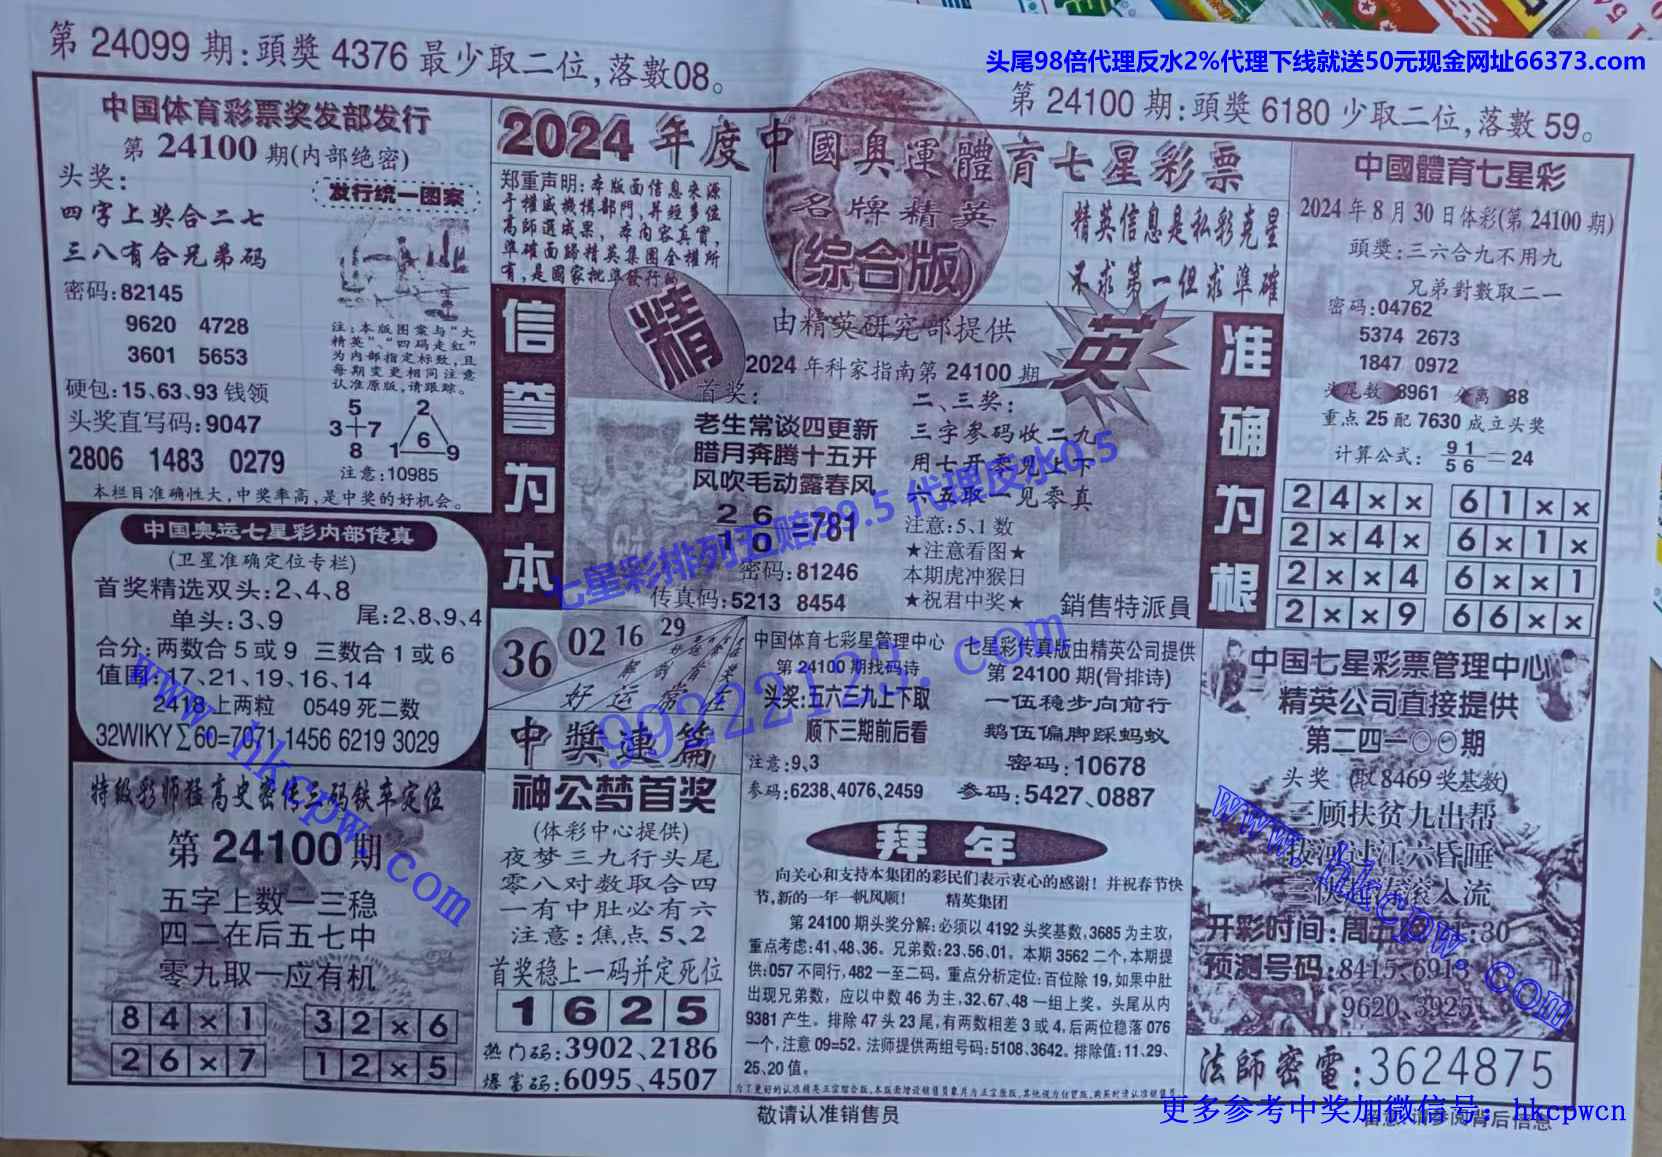 第 24099 期:頭獎 4376 最少取二位,落數08。
头尾98倍代理反水2%代理下线就送50元现金网址66373.com
第 24100 期:頭獎 6180 少取二位,落數 59。
中国体育彩票奖发部发行
第 24100 期(内部绝密)
头奖:
发行统一图案
四字上奖合二七
三八有合兄弟码
密码:82145
9620 4728
3601 5653
注:本版图案与“大
精英”、“四码走红”
为内部指定标致,且
每期变更相同注意
认准原版,请跟踪。
硬包:15、63、93 钱领
头奖直写码:9047
2806 1483 0279
5
3+7
8
2
6
1 9
注意:10985
本栏目准确性大,中奖率高,是中奖的好机会。
2024 年度中國奥運體育七星彩票
名牌精英
(综合版)
郑重声明:本版面信息来源
于權威機構部門,并经多位
高師選成果,本内容真實,
準確面跨精英集图全權所
有,是國家批準發行的
精英信息是私彩克星
不求第一但求準確
信誉为本
精
英
由精英研究部提供
2024 年科家指南第 24100 期
首奖:
老生常谈四更新
腊月奔腾十五开
风吹毛动露春风
2 6
1 0
=781
密码:81246
传真码:5213 8454
二、三奖:
三字参码收二九
用七开零见上下
六五取一见零真
注意:5、1 数
★注意看图★
本期虎冲猴日
★祝君中奖★
銷售特派員
准确为根
七星彩排列五赔99.5 代理反水0.5
中國體育七星彩
2024 年 8 月 30 日体彩(第 24100 期)
頭獎:三六合九不用九
兄弟對數取二一
密码:04762
5374 2673
1847 0972
头尾数 8961 分离 38
重点 25 配 7630 成立头奖
计算公式: 9 1
5 6 = 24
2 4 × × 6 1 × ×
2 × 4 × 6 × 1 ×
2 × × 4 6 × × 1
2 × × 9 6 6 × ×
中国奥运七星彩内部传真
(卫星准确定位专栏)
首奖精选双头:2、4、8
单头:3、9 尾:2、8、9、4
合分:两数合 5 或 9 三数合 1 或 6
值围:17、21、19、16、14
2418 上两粒 0549 死二数
32WIKY∑60=7071 1456 6219 3029
36 02 16 29
好运常在
中奬連篇
神公梦首奖
(体彩中心提供)
夜梦三九行头尾
零八对数取合四
一有中肚必有六
注意:焦点 5、2
首奖稳上一码并定死位
1 6 2 5
热门码:3902、2186
爆富码:6095、4507
中国体育七彩星管理中心
第 24100 期找码诗
头奖:五六三九上下取
顺下三期前后看
注意:9、3
参码:6238、4076、2459
七星彩传真版由精英公司提供
第 24100 期(骨排诗)
一伍稳步向前行
鹅伍偏脚踩蚂蚁
密码:10678
参码:5427、0887
99222123.com
拜年
向关心和支持本集团的彩民们表示衷心的感谢!并祝春节快
节,新的一年一帆风顺! 精英集团
第 24100 期头奖分解:必须以 4192 头奖基数,3685 为主攻,
重点考虑:41、48、36。兄弟数:23、56、01。本期 3562 二个,本期提
供:057 不同行,482 一至二码。重点分析定位:百位除 19,如果中肚
出现兄弟数,应以中数 46 为主,32、67、48 一组上奖。头尾从内
9381 产生。排除 47 头 23 尾,有两数相差 3 或 4,后两位稳落 076
一个,注意 09=52。法师提供两组号码:5108、3642。排除值:11、29、
25、20 值。
敬请认准销售员
中国七星彩票管理中心
精英公司直接提供
第二四一〇〇期
头奖 (取 8469 奖基数)
三顾扶贫九出帮
拔河过江六昏睡
开彩时间:周
预测号码:8415、6913
9620、3925
法師密電:3624875
特级彩师猛高史密传三码铁车定位
第 24100 期
五字上数一三稳
四二在后五七中
零九取一应有机
8 4 × 1 3 2 × 6
2 6 × 7 1 2 × 5
www.hkcpw.com
www.hkcpw.com
更多参考中奖加微信号: hkcpwcn